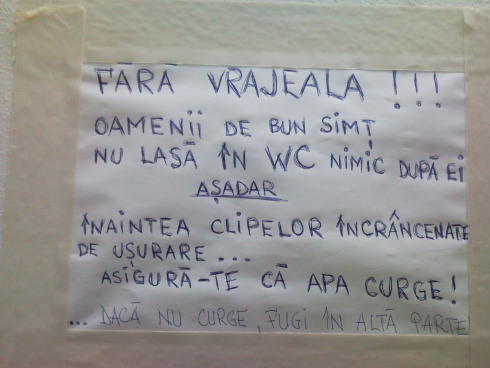 FĂRĂ VRAJEALA !!!
OAMENII DE BUN SIMȚ
NU LASĂ ÎN WC NIMIC DUPĂ EI
AȘADAR
ÎNAINTEA CLIPELOR ÎNCRÂNCENATE
DE UȘURARE...
ASIGURĂ-TE CĂ APA CURGE!
... DACĂ NU CURGE, FUGI ÎN ALTĂ PARTE